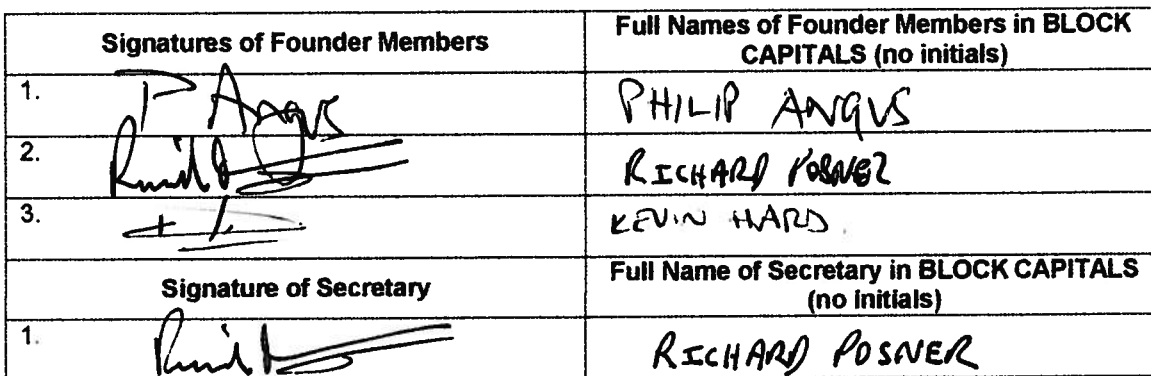 Signatures of Founder Members
Full Names of Founder Members in BLOCK
CAPITALS (no initials)
1. P Angus
PHILIP ANGUS
2.
RICHARD POSNER
3.
KEVIN HARD
Signature of Secretary
Full Name of Secretary in BLOCK CAPITALS
(no initials)
1.
RICHARD POSNER